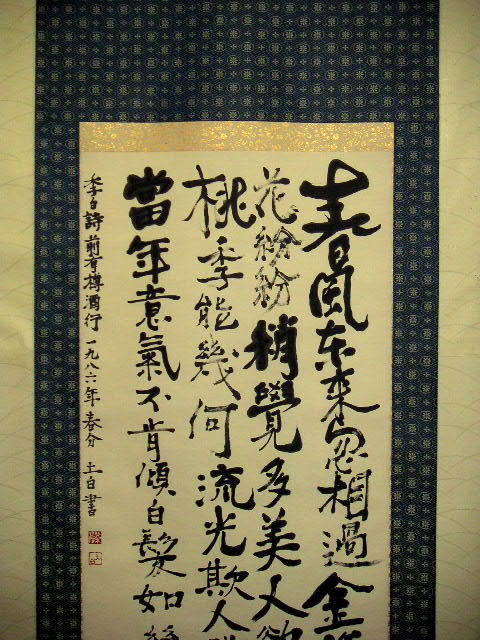 春風东來忽相過金
花紛紛稍覺多美人欲
桃李能幾何流光欺人
當年意氣不肯傾白髮如
李白詩前有樽酒行一九八六年春分土白書